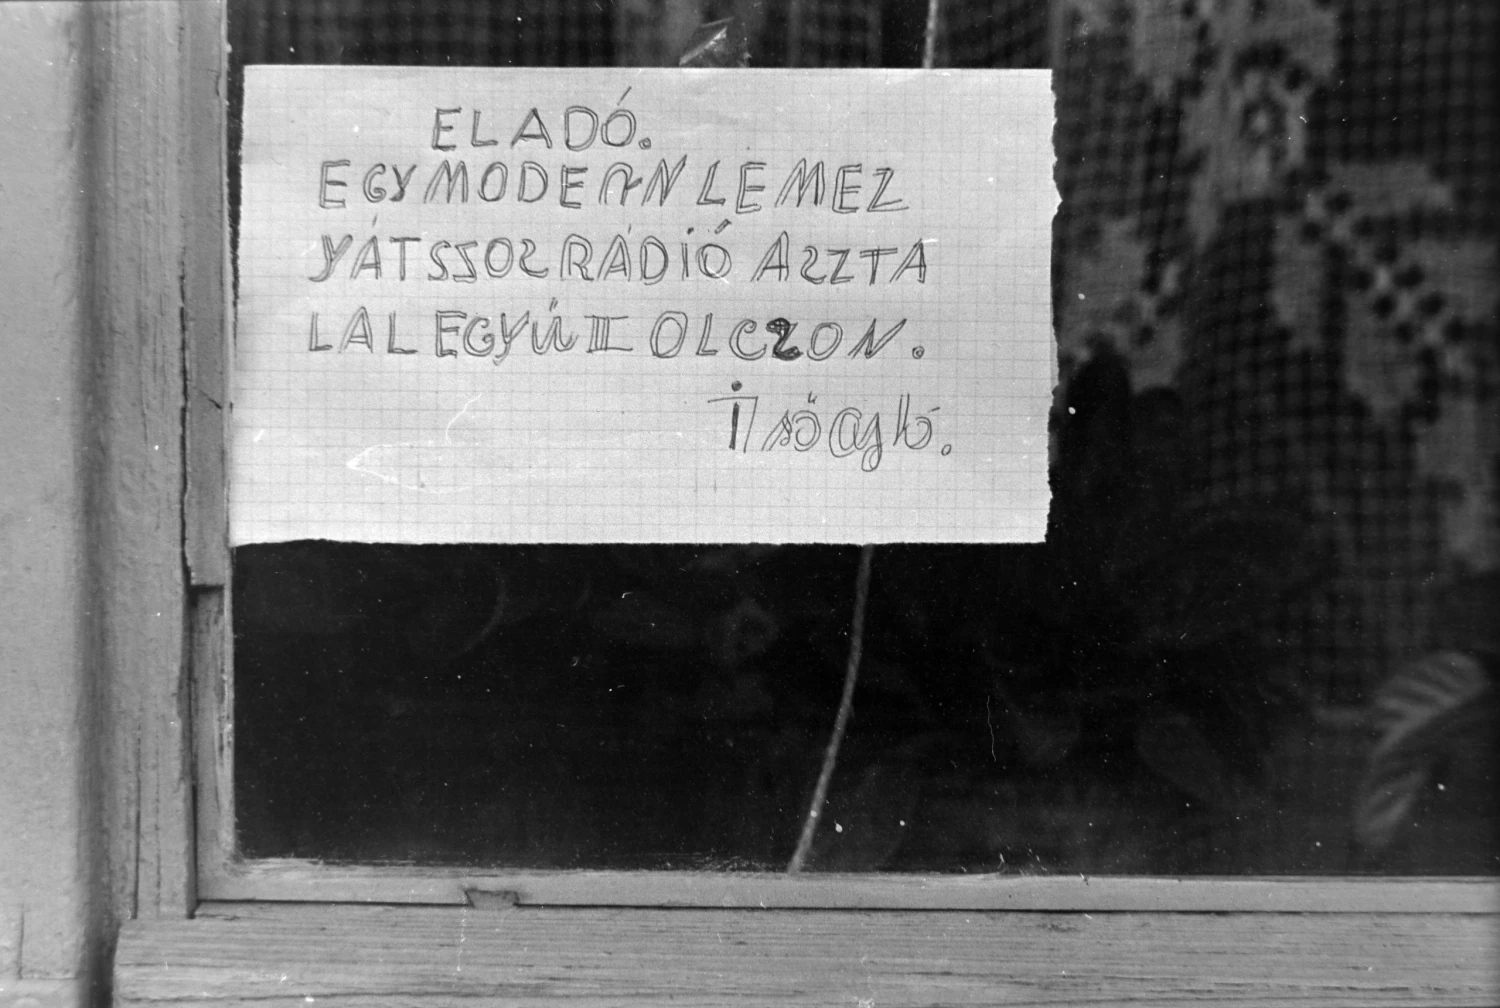 ELADÓ.
EGY MODERN LEMEZ
YÁTSSZOS RÁDIÓ ASZTA
LAL EGYÚTT OLCZON.
Első ajtó.